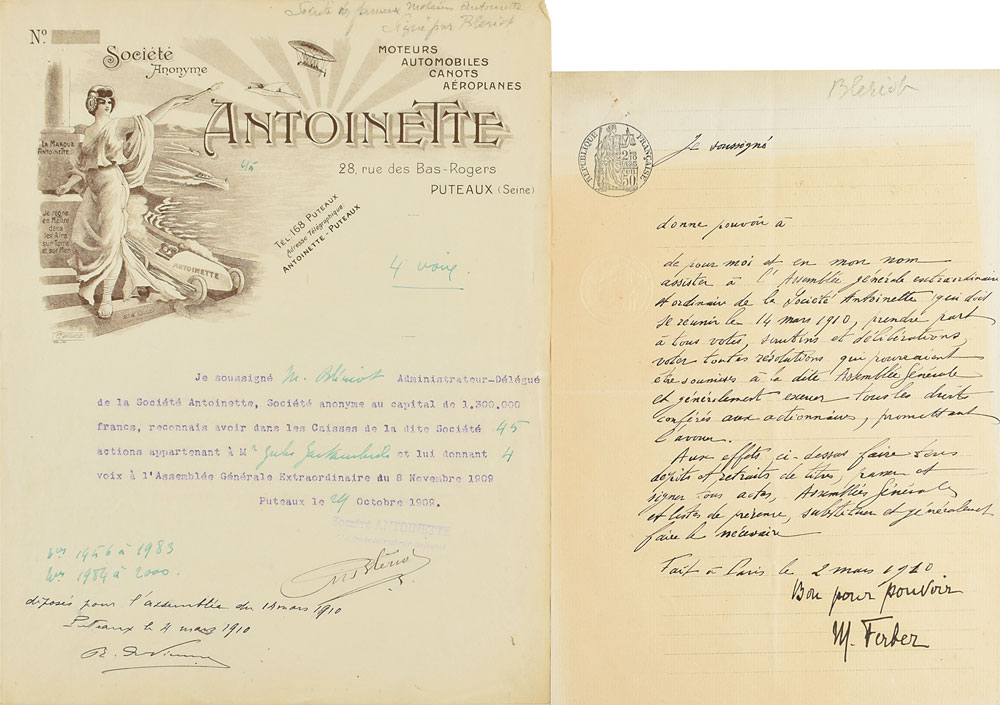 Société des fameux Moteurs Antoinette
Signé par Bleriot
Nº
Société
Anonyme
ANTOINETTE
MOTEURS
AUTOMOBILES
CANOTS
AÉROPLANES
28, rue des Bas-Rogers
PUTEAUX (Seine)
TÉL: 168 PUTEAUX
Adresse Télégraphique:
ANTOINETTE-PUTEAUX
LA MARQUE
ANTOINETTE
Je règne
en Maître
dans
les Airs
sur Terre
et sur Mer
ANTOINETTE
45
4 voix
Je soussigné M. Blériot Administrateur-Délégué
de la Société Antoinette, Société anonyme au capital de 1.300.000
francs, reconnais avoir dans les Caisses de la dite Société 45
actions appartenant à Mr Jules et lui donnant 4
voix à l'Assemblée Générale Extraordinaire du 8 Novembre 1909
Puteaux le 29 Octobre 1909.
Société ANTOINETTE
Blériot
Nos 1956 à 1983
Nos 1984 à 2000.
déposés pour l'assemblée du 14 mars 1910
Puteaux le 4 mars 1910
Bleriot
RÉPUBLIQUE FRANÇAISE
Je soussigné
donne pouvoir à
de pour moi et en mon nom
assister à l'Assemblée générale extraordinaire
et ordinaire de la Société Antoinette qui doit
se réunir le 14 mars 1910, prendre part
à tous votes, scrutins et délibérations,
voter toutes résolutions qui pourraient
être soumises à la dite Assemblée Générale
et généralement exercer tous les droits
conférés aux actionnaires, promettant
l'avouer.
Aux effets ci-dessus faire tous
dépôts et retraits de titres, passer et
signer tous actes, Assemblées Générales
et listes de présence, substituer et généralement
faire le nécessaire
Fait à Paris le 2 mars 1910
Bon pour pouvoir
M. Ferber